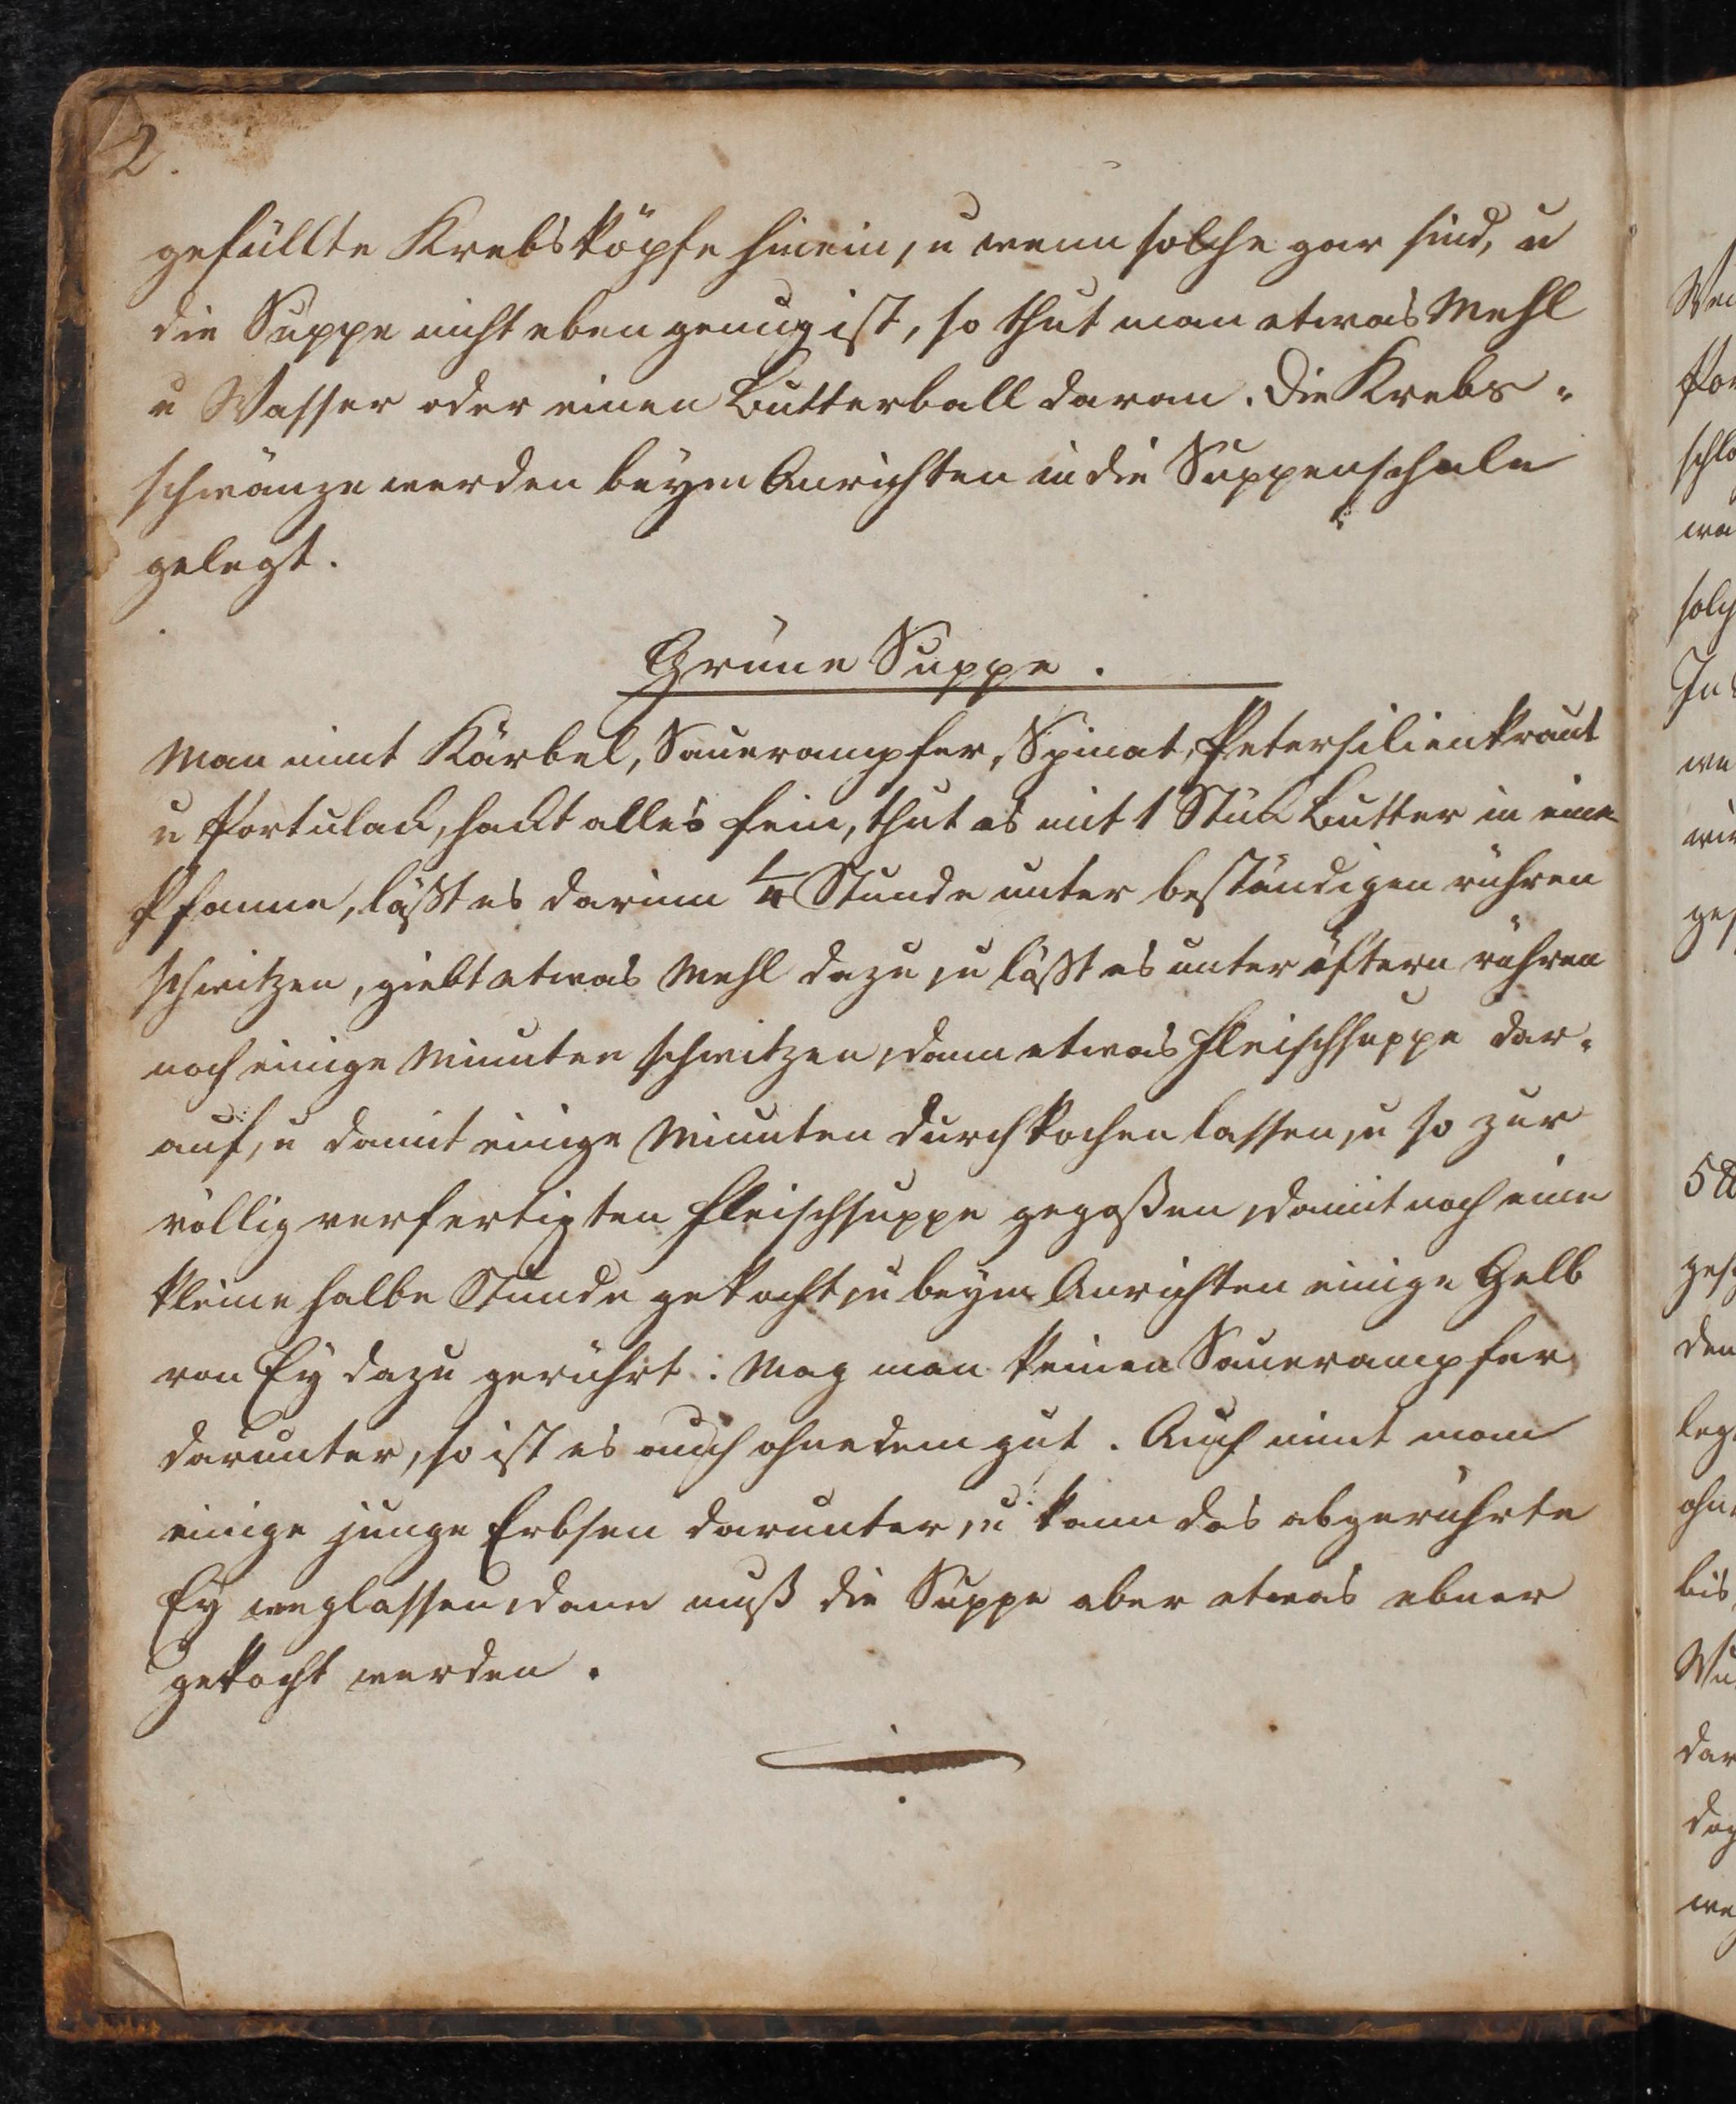 2.
gefüllte Krebsköpfe hinein, u wenn solche gar sind, u
die Suppe nicht eben genug ist, so thut man etwas Mehl
u Wasser oder einen Butterball daran. Die Krebs-
schwänze werden beym Anrichten in die Suppenschale
gelegt.
Grüne Suppe.
Man nimt Kärbel, Sauerampfer, Spinat, Petersilienkraut
u Portulack, hackt alles fein, thut es mit 1 Stück Butter in eine
Pfanne, läßt es darinn 1/4 Stunde unter beständigen rühren
schwitzen, giebt etwas Mehl dazu, u läßt es unter öftern rühren
noch einige Minuten schwitzen, dann etwas Fleischsuppe dar-
auf, u damit einige Minuten durchkochen lassen, u so zur
völlig verfertigten Fleischsuppe gegoßen, damit noch eine
kleine halbe Stunde gekocht, u beym Anrichten einige Gelb
von Ey dazu gerührt. Mag man keinen Sauerampfer
darunter, so ist es auch ohnedem gut. Auch nimt man
einige junge Erbsen darunter, u kann das abgerührte
Ey weglassen, dann muß die Suppe aber etwas ebner
gekocht werden.